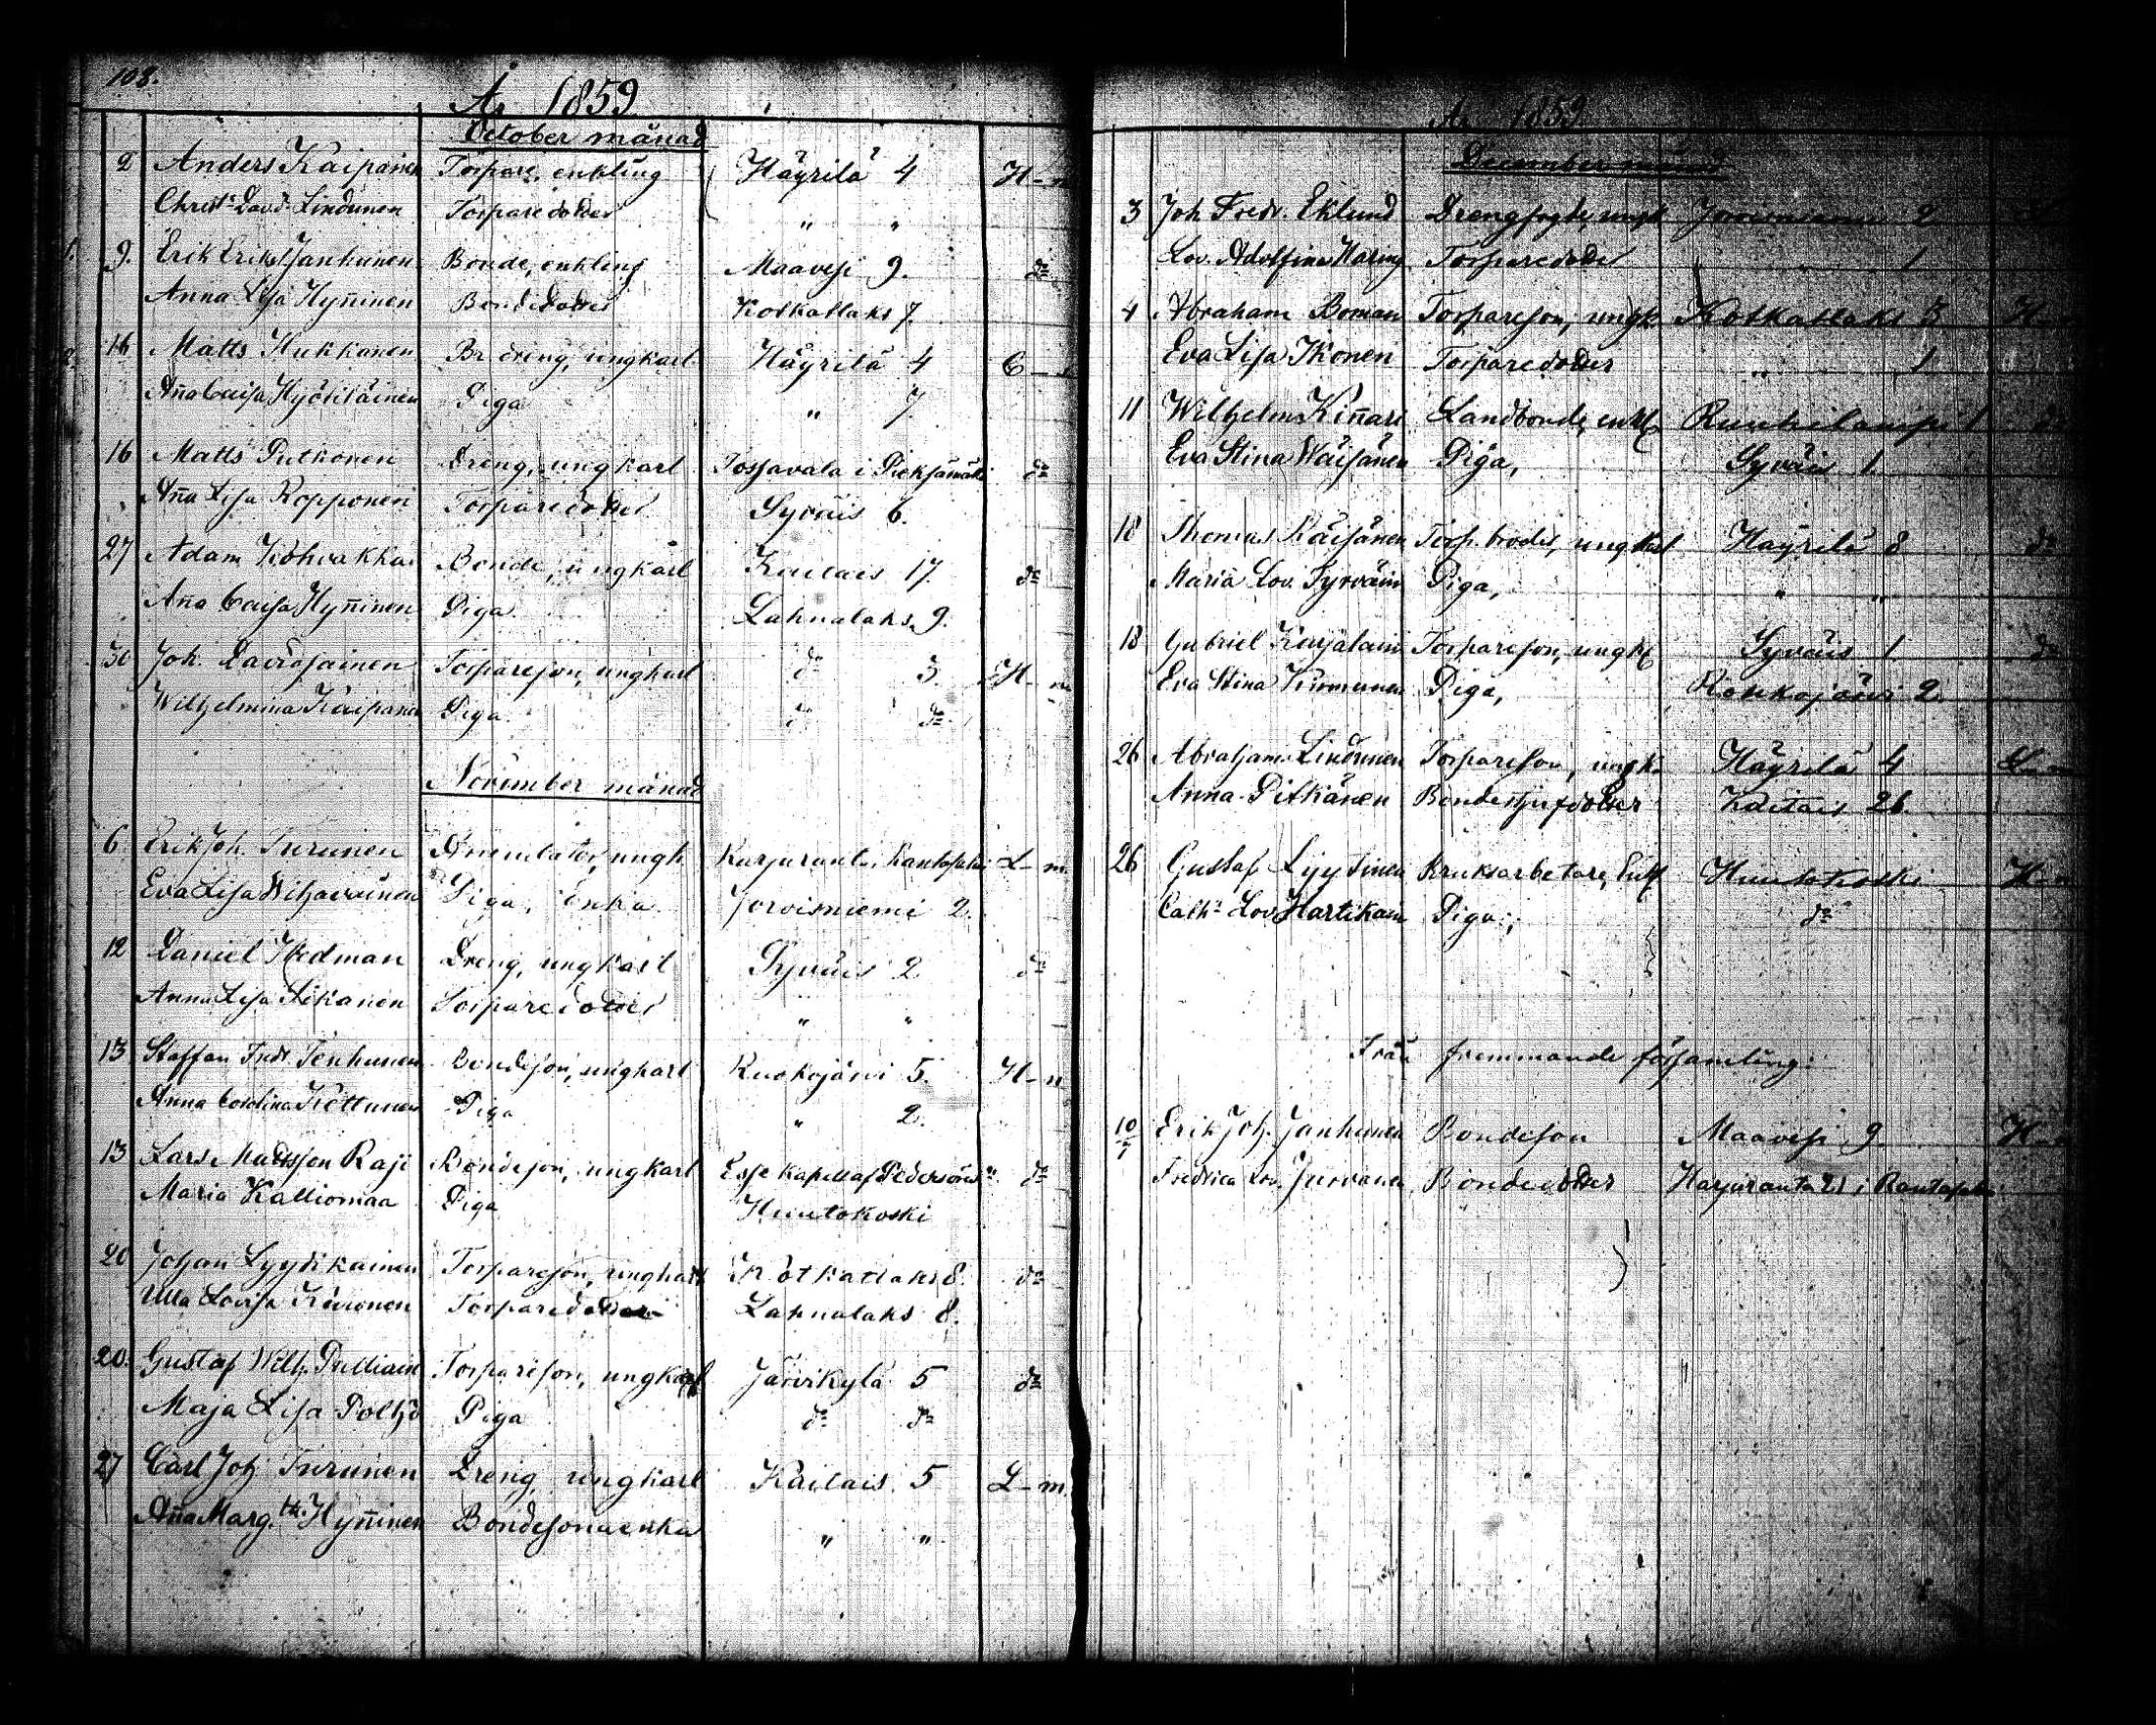 108.
År 1859
October månad
2 Anders Kaipainen Torpare, enkling Häyrilä 4 H-n
Christ: Lovd. Lindunen Torparedotter " "
1. 9. Erik Eriks. Janhunen Bonde, enkling Maavesi 9. do
Anna Lisa Hyn̄inen Bondedotter Kotkatlaks 7.
2. 16 Matts Hukkanen Br. dreng, ungkarl Häyrilä 4
An̄a Caisa Hyötiläinen Piga " 7.
16 Matts Putkonen Dreng, ungkarl Tossavala i Pieksämäki do
An̄a Lisa Ropponen Torparedotter Syväis 6.
27 Adam Kohvakka Bonde, ungkarl Kaitais 17. do
An̄a Caisa Hyn̄inen Piga Lahnalaks 9.
30 Joh. Torpareson, ungkarl do 3. H-n
Wilhelmina Kaipainen Piga do do
November månad
6. Erik Joh. Turunen Arrendator, ungk. i Rantasalmi L-m.
Eva Lisa Wiljavainen Piga, Enka Jorvisniemi 2.
12 Daniel Hedman Dreng, ungkarl Syväis 2 do
Anna Lisa Ikänen Torparedotter " "
13 Staffan Fredr. Tenhunen Bondeson, ungkarl Ruokojärvi 5. H-n
Anna Carolina Köttunen Piga " 2.
13 Lars Mattsson Raji Bondeson, ungkarl Esse Kapell af do
Maria Kalliomaa Piga Huutokoski
20 Johan Lyytikainen Torpareson, ungkarl Kotkatlaks 8. do
Ulla Lovisa Torparedotter Lahnalaks 8.
20. Gustaf Wilh. Pulliain Torpareson, ungkarl Järvikylä 5 do
Maja Lisa Piga do do
27 Carl Joh. Turunen Dreng, ungkarl Kaitais 5 L-m.
An̄a Marg. Hyn̄inen Bondesonaenka " "
År 1859
December månad
3 Joh Fredr. Eklund Drengfogde, ungk Jorvisniemi 2
Lov. Adolfina Haring Torparedotter " 1
4 Abraham Boman Torpareson, ungk. Kotkatlaks 5 H-n
Eva Lisa Ikonen Torparedotter " 1
11 Wilhelm Kin̄ari Landbonde, enkl 1 do
Eva Stina Wäisänen Piga, Syväis 1.
18 Thomas Räisänen Torp. broder, ungkarl Häyrilä 8 do
Maria Lov. Syrväin Piga, " "
18 Gabriel Karjalain Torpareson, ungk Syväis 1. do
Eva Stina Piga, Ruokojärvi 2.
26 Abraham Lindunen Torpareson, ungk. Häyrilä 4 L-m
Anna Pitkänen Bondestjufdotter Kaitais 26.
26 Gustaf Lyytinen Bruksarbetare, Enkl Huutokoski H-n
Cath: Lov. Hartikain Piga, do
Från fremmande församling:
10/7 Erik Joh. Janhunen Bondeson Maavesi 9. H-n
Fredrica Lov. Jurvanen Bondedotter Harjuranta 21 i Rantasalmi